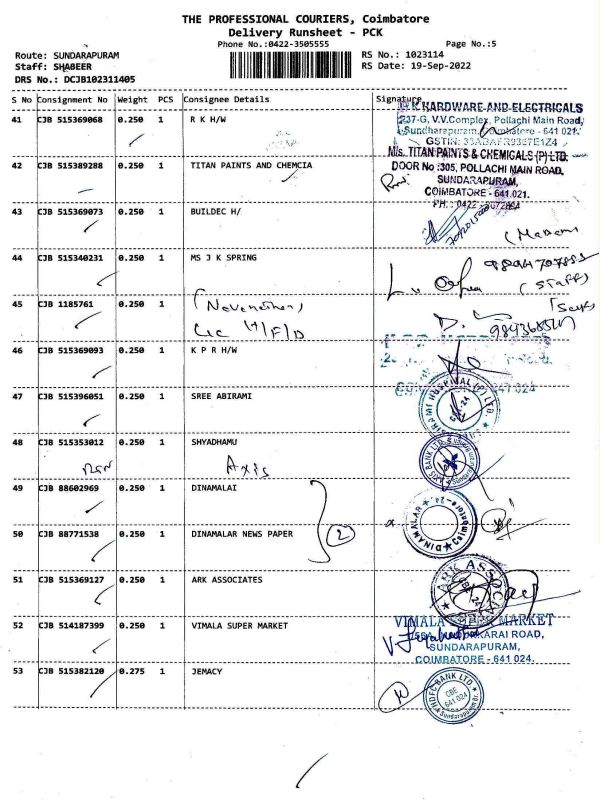 THE PROFESSIONAL COURIERS, Coimbatore
Delivery Runsheet - PCK
Phone No.:0422-3505555
Page No.:5
Route: SUNDARAPURAM
RS No.: 1023114
Staff: SHABEER
RS Date: 19-Sep-2022
DRS No.: DCJB102311405
S No Consignment No Weight PCS Consignee Details Signature
41 CJB 515369068 0.250 1 R K H/W
HARDWARE AND ELECTRICALS
237-G, V.V.Complex, Pollachi Main Road,
Sundharapuram, Coimbatore - 641 021.
42 CJB 515389288 0.250 1 TITAN PAINTS AND CHEMCIA
M/s. TITAN PAINTS & CHEMICALS (P) LTD.
DOOR No :305, POLLACHI MAIN ROAD,
SUNDARAPURAM,
COIMBATORE - 641.021.
43 CJB 515369073 0.250 1 BUILDEC H/
44 CJB 515340231 0.250 1 MS J K SPRING
(Staff)
45 CJB 1185761 0.250 1
Lic H/F/D
46 CJB 515369093 0.250 1 K P R H/W
641 024
47 CJB 515396051 0.250 1 SREE ABIRAMI
48 CJB 515353012 0.250 1 SHYADHAMU
Axis
49 CJB 88602969 0.250 1 DINAMALAI
2
50 CJB 88771538 0.250 1 DINAMALAR NEWS PAPER
DINAMALAR
51 CJB 515369127 0.250 1 ARK ASSOCIATES
52 CJB 514187399 0.250 1 VIMALA SUPER MARKET
VIMALA SUPER MARKET
SUNDARAPURAM,
COIMBATORE - 641 024.
53 CJB 515382120 0.275 1 JEMACY
HDFC BANK LTD.
CBE
641 024
Sundarapuram Br.